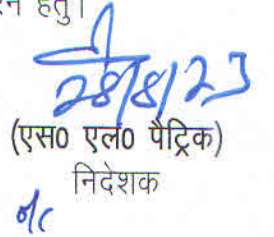 हेतु।
28/8/23
(एस0 एल0 पैट्रिक)
निदेशक